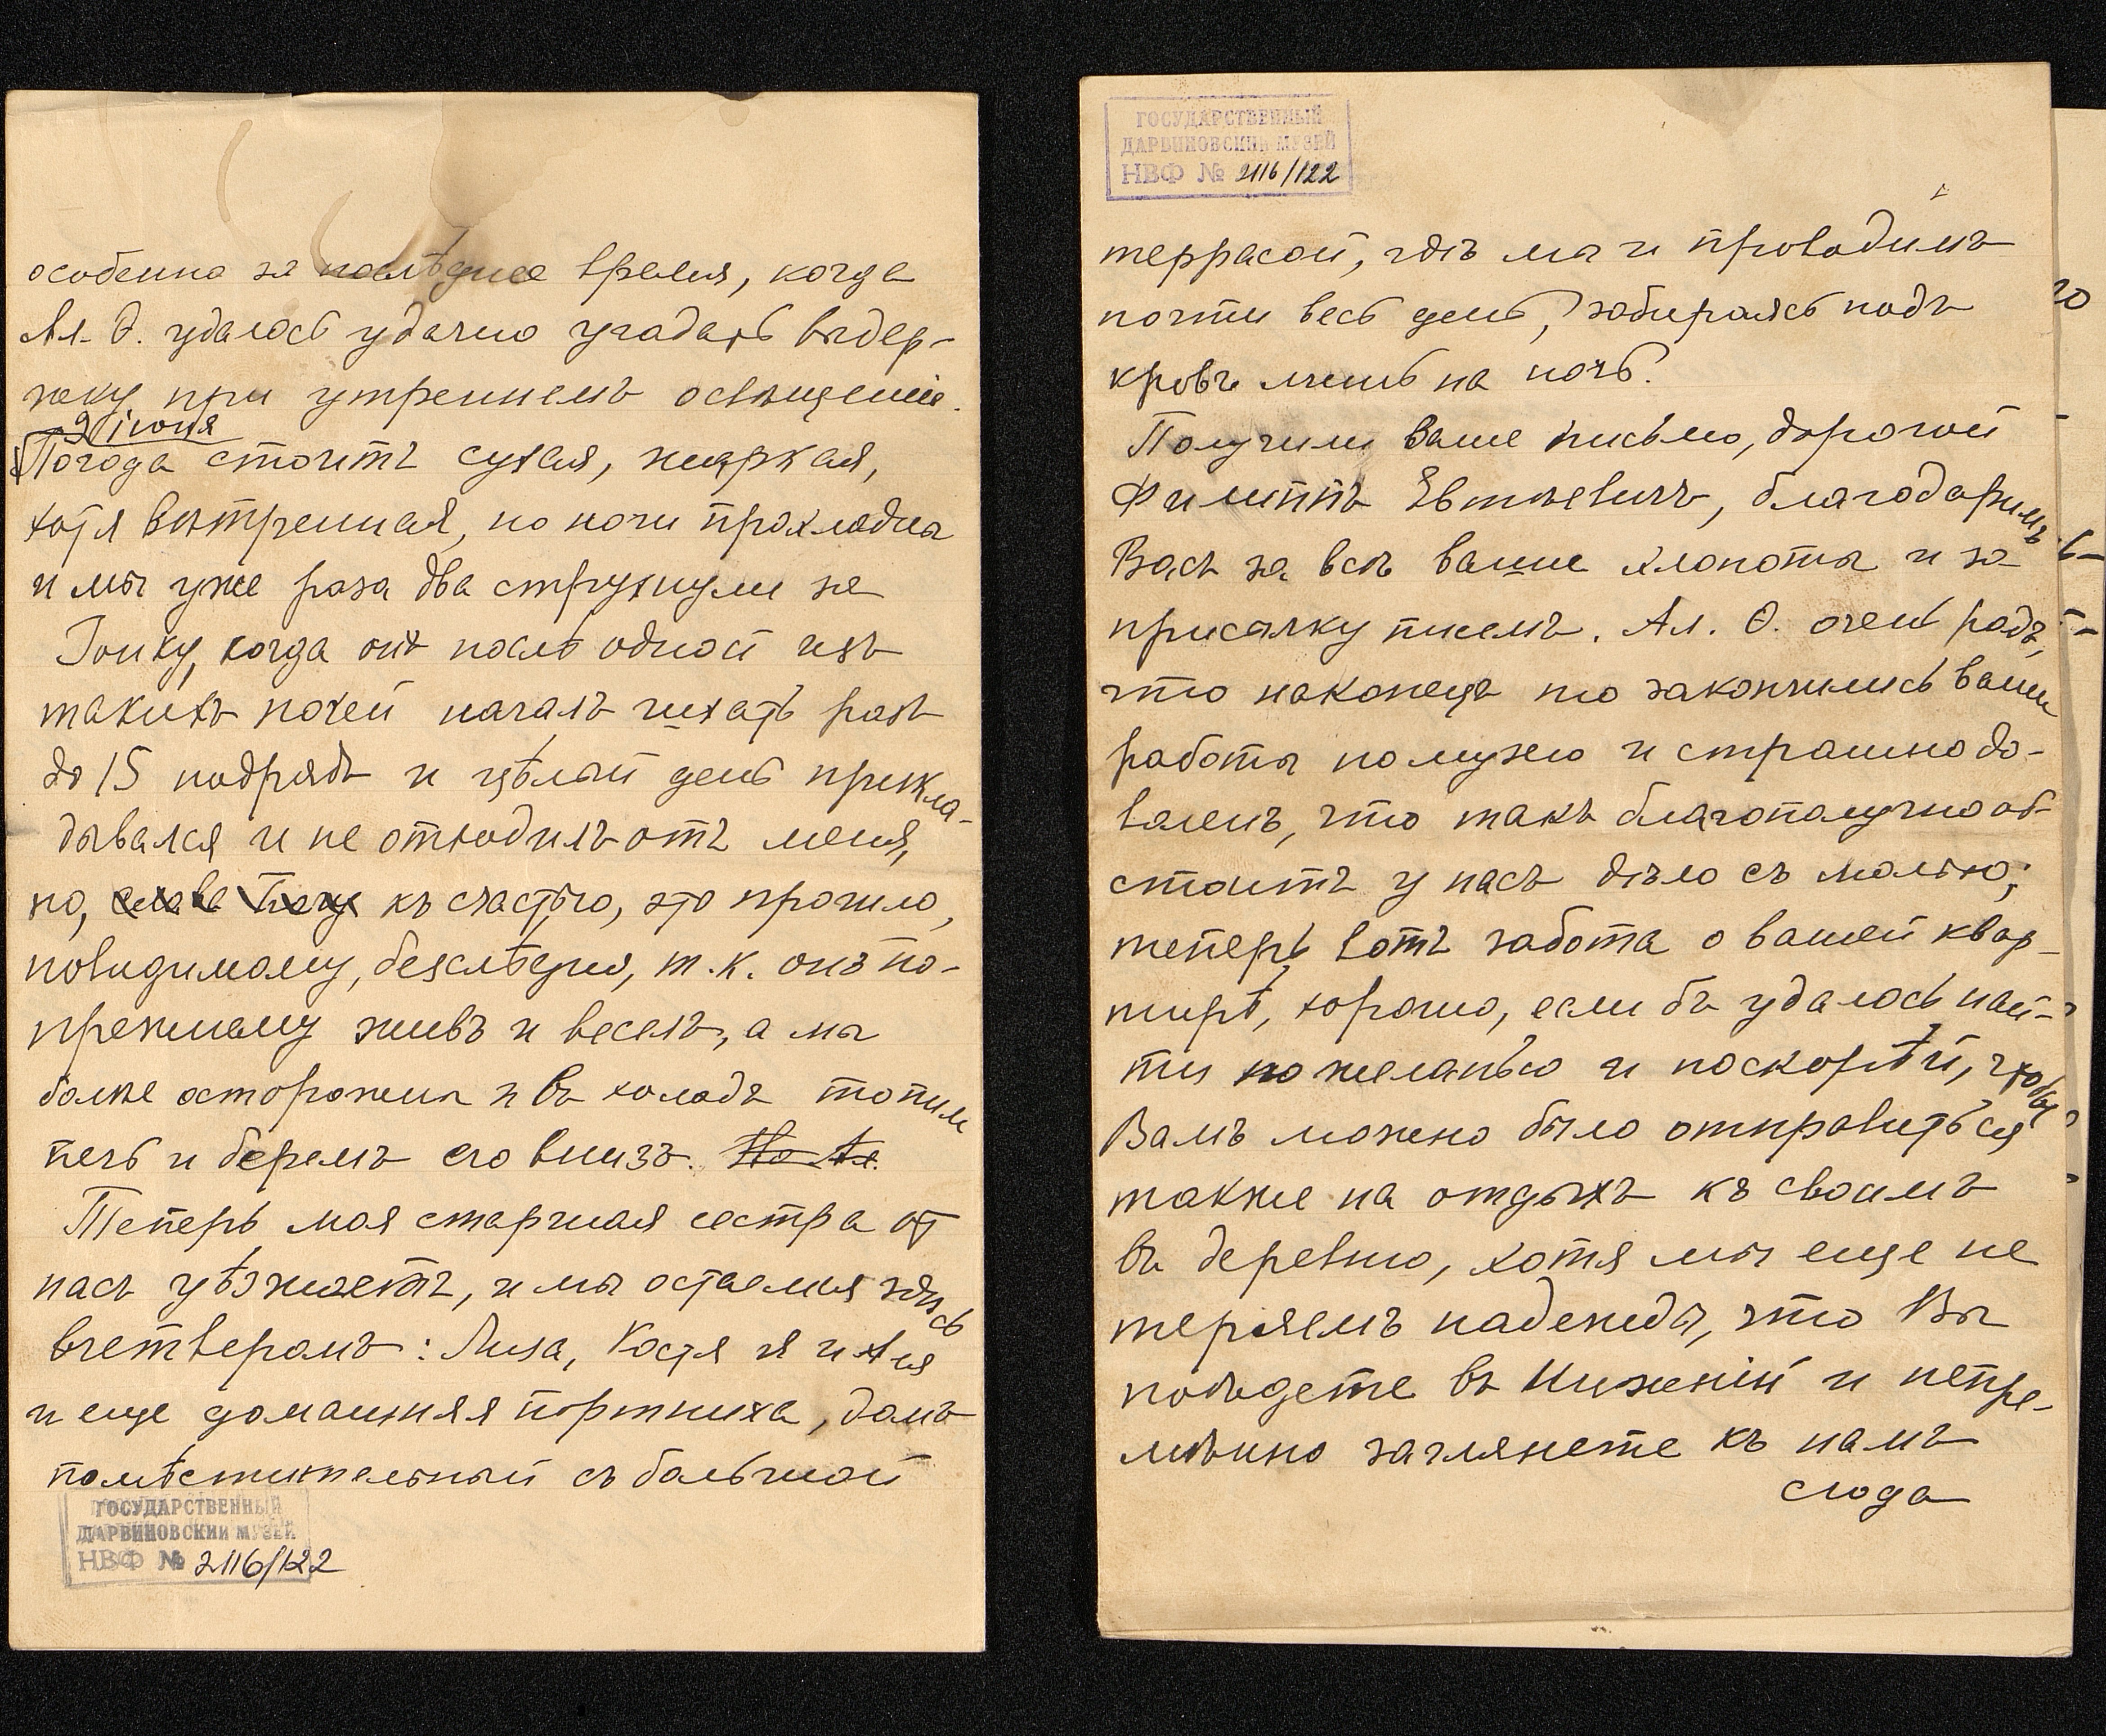 особенно за послѣднее время, когда
Ал. Ѳ. удалось удачно угадать выдер-
жку при утреннемъ освѣщеніи.
9 іюня
Погода стоитъ сухая, жаркая,
хотя вѣтренная, но ночи прохладны
и мы уже раза два струхнули за
Іони́ку, когда онъ послѣ одной изъ
такихъ ночей началъ чихать разъ
до 15 подрядъ и цѣлый день прикла-
дывался и не отходилъ отъ меня,
но, слава Богу къ счастью, это прошло,
повидимому, безслѣдно, т.к. онъ по-
прежнему живъ и веселъ, а мы
болѣе осторожны и въ холода топимъ
печь и беремъ его внизъ. Но Ал.
Теперь моя старшая сестра от
насъ уѣзжаетъ, и мы остаемся здѣсь
вчетверомъ: Лиза, Костя я и Аля
и еще домашняя портниха, домъ
помѣстительный съ большой
ГОСУДАРСТВЕННЫЙ
ДАРВИНОВСКИЙ МУЗЕЙ
НВФ № 2116/122
ГОСУДАРСТВЕННЫЙ
ДАРВИНОВСКИЙ МУЗЕЙ
НВФ № 2116/122
террасой, гдѣ мы и проводимъ
почти весь день, забираясь подъ
кровъ лишь на ночь.
Получили Ваше письмо, дорогой
Филиппъ Евтѣевичъ, благодаримъ
Васъ за всѣ ваши хлопоты и за
присылку писемъ. Ал. Ѳ. очень радъ,
что наконецъ то закончились ваши
работы по музею и страшно до-
воленъ, что такъ благополучно об-
стоитъ у насъ дѣло съ молью;
теперь вотъ забота о вашей квар-
тирѣ, хорошо, если бъ удалось най-
ти по желанью и поскорѣй, чтобы
Вамъ можно было отправиться
также на отдыхъ къ своимъ
въ деревню, хотя мы еще не
теряемъ надежды, что Вы
поѣдете въ Нижній и непре-
мѣнно заглянете къ намъ
сюда